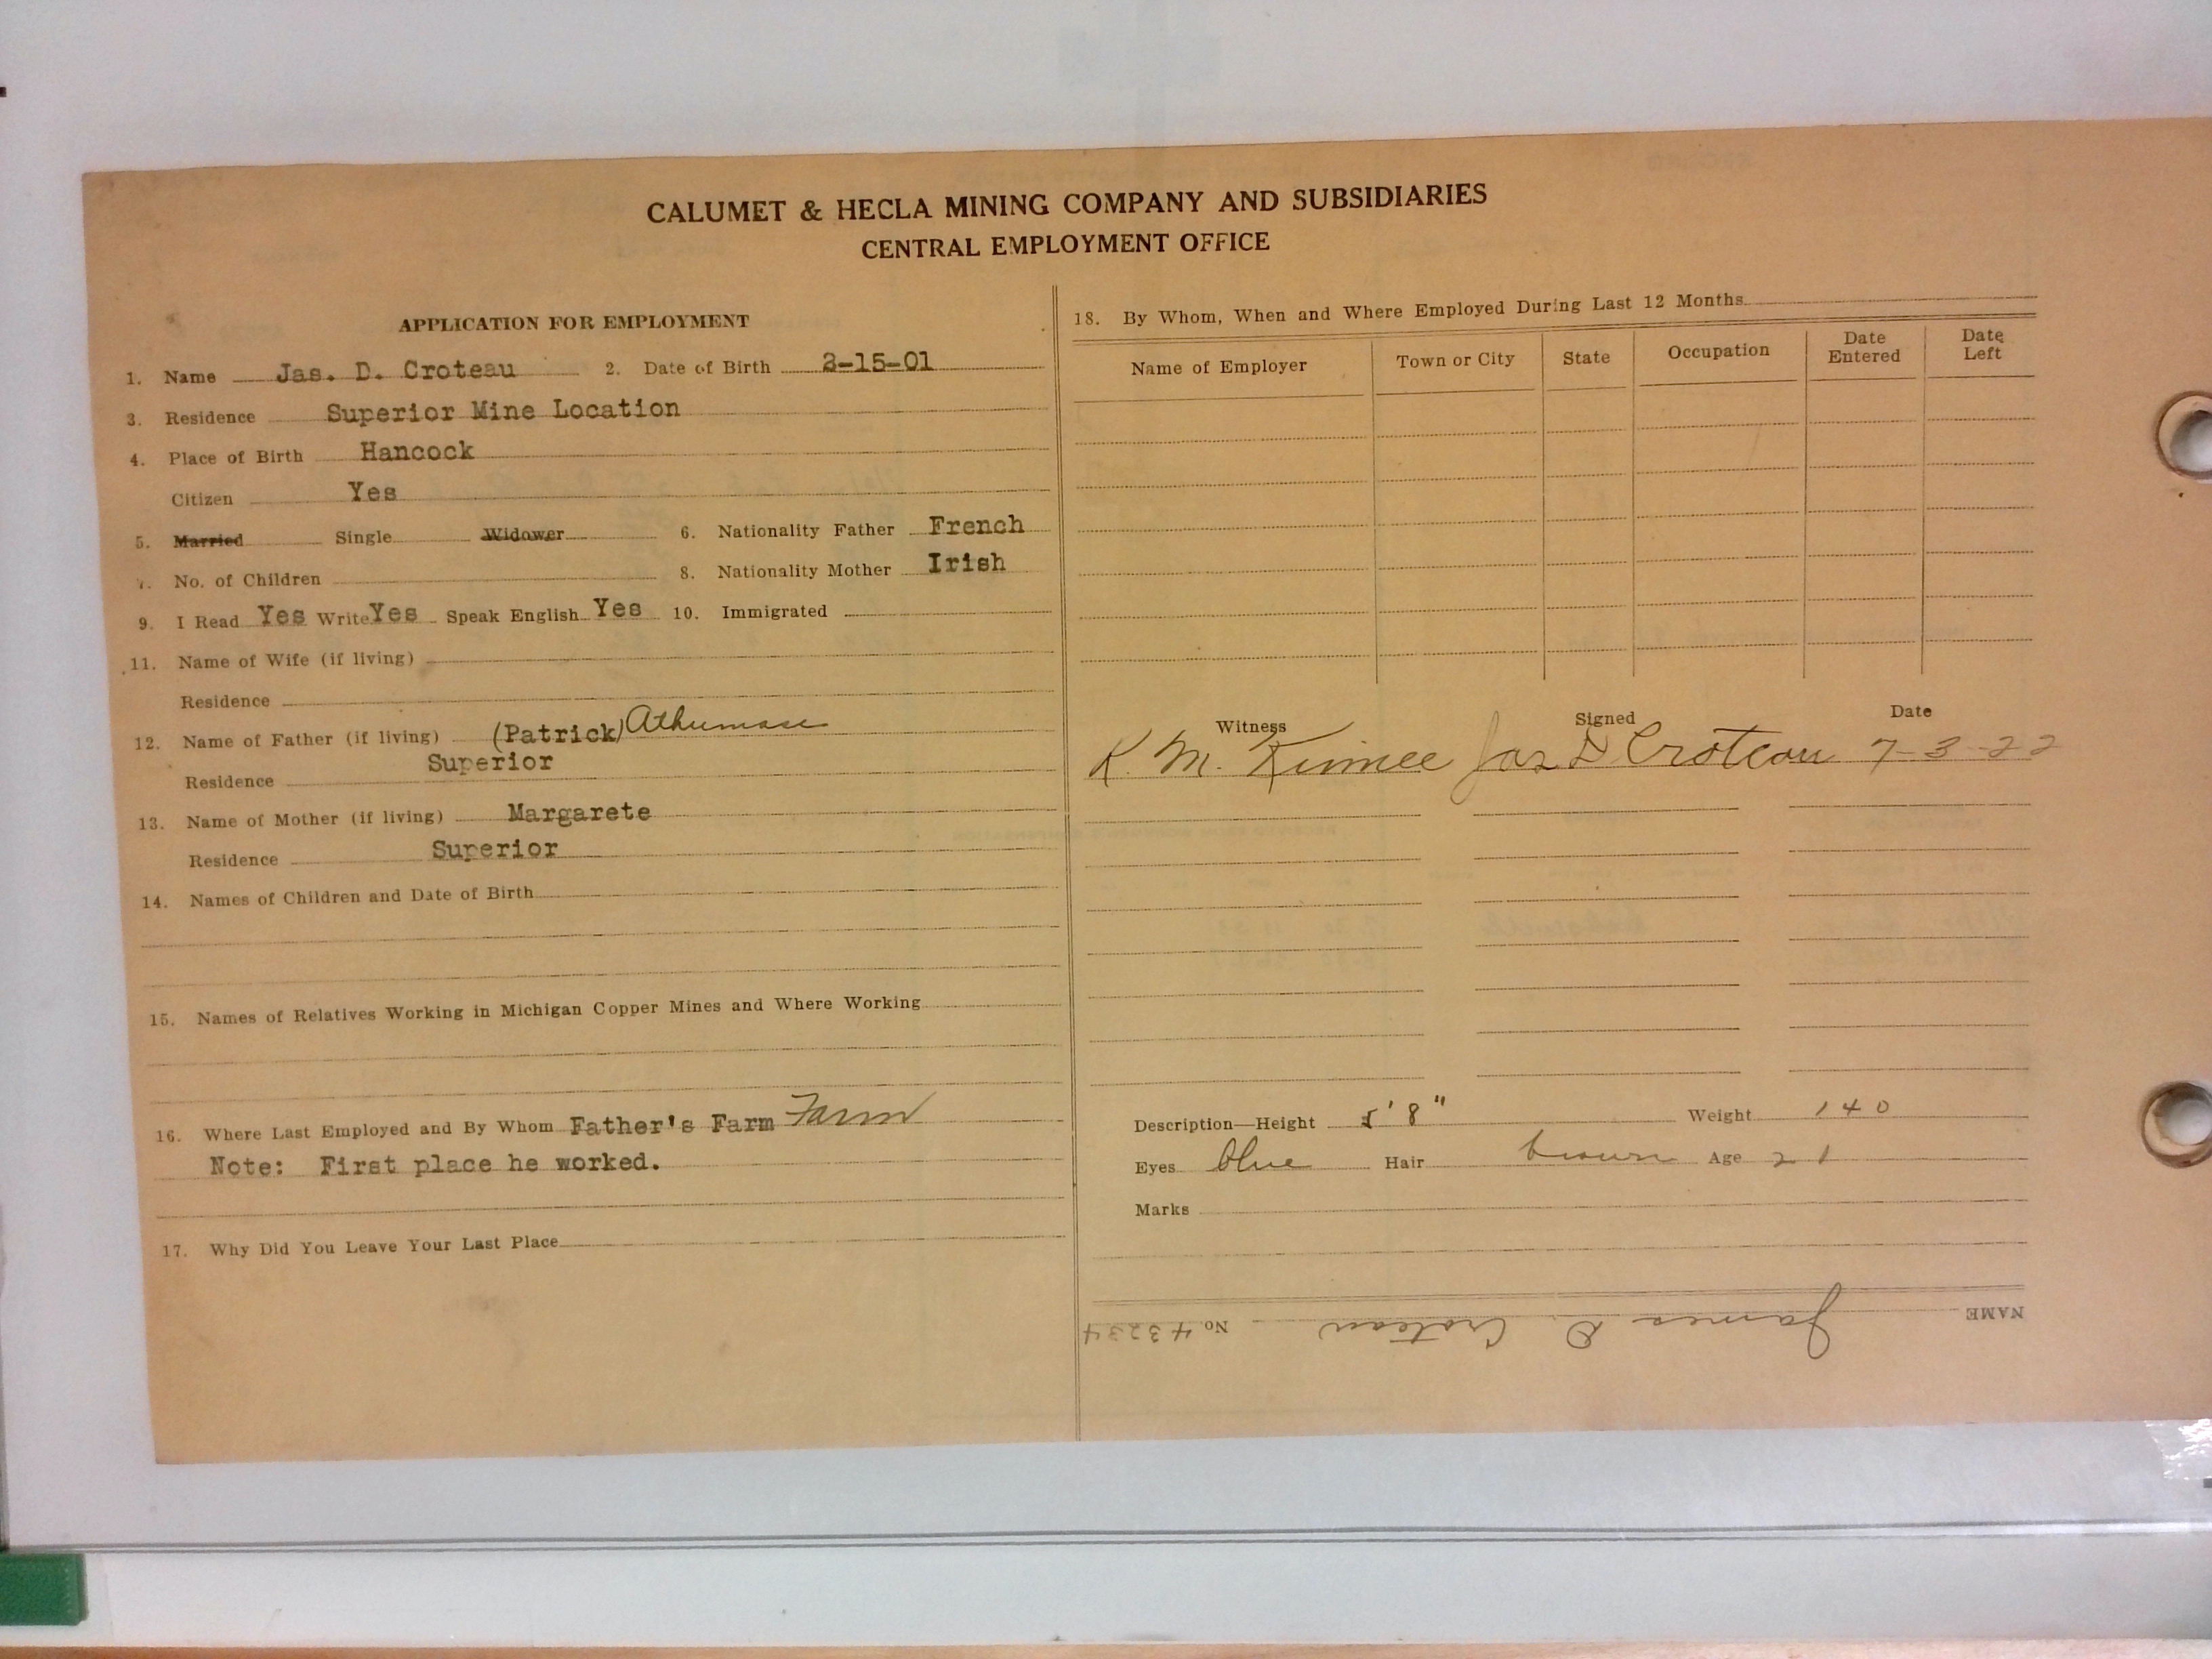 CALUMET & HECLA MINING COMPANY AND SUBSIDIARIES
CENTRAL EMPLOYMENT OFFICE
APPLICATION FOR EMPLOYMENT
1. Name Jas. D. Croteau 2. Date of Birth 3-15-01
3. Residence Superior Mine Location
4. Place of Birth Hancock
Citizen Yes
5. Married Single Widower 6. Nationality Father French
7. No. of Children 8. Nationality Mother Irish
9. I Read Yes Write Yes Speak English Yes 10. Immigrated
11. Name of Wife (if living)
Residence
12. Name of Father (if living) (Patrick)
Residence Superior
13. Name of Mother (if living) Margarete
Residence Superior
14. Names of Children and Date of Birth
15. Names of Relatives Working in Michigan Copper Mines and Where Working
16. Where Last Employed and By Whom Father's Farm Farm
Note: First place he worked.
17. Why Did You Leave Your Last Place
18. By Whom, When and Where Employed During Last 12 Months
Name of Employer Town or City State Occupation Date Entered Date Left
Witness Signed Date
K. M. Jas D Croteau 7-3-22
Description—Height 5'8" Weight 140
Eyes blue Hair brown Age 21
Marks
NAME James D. Croteau No. 43234